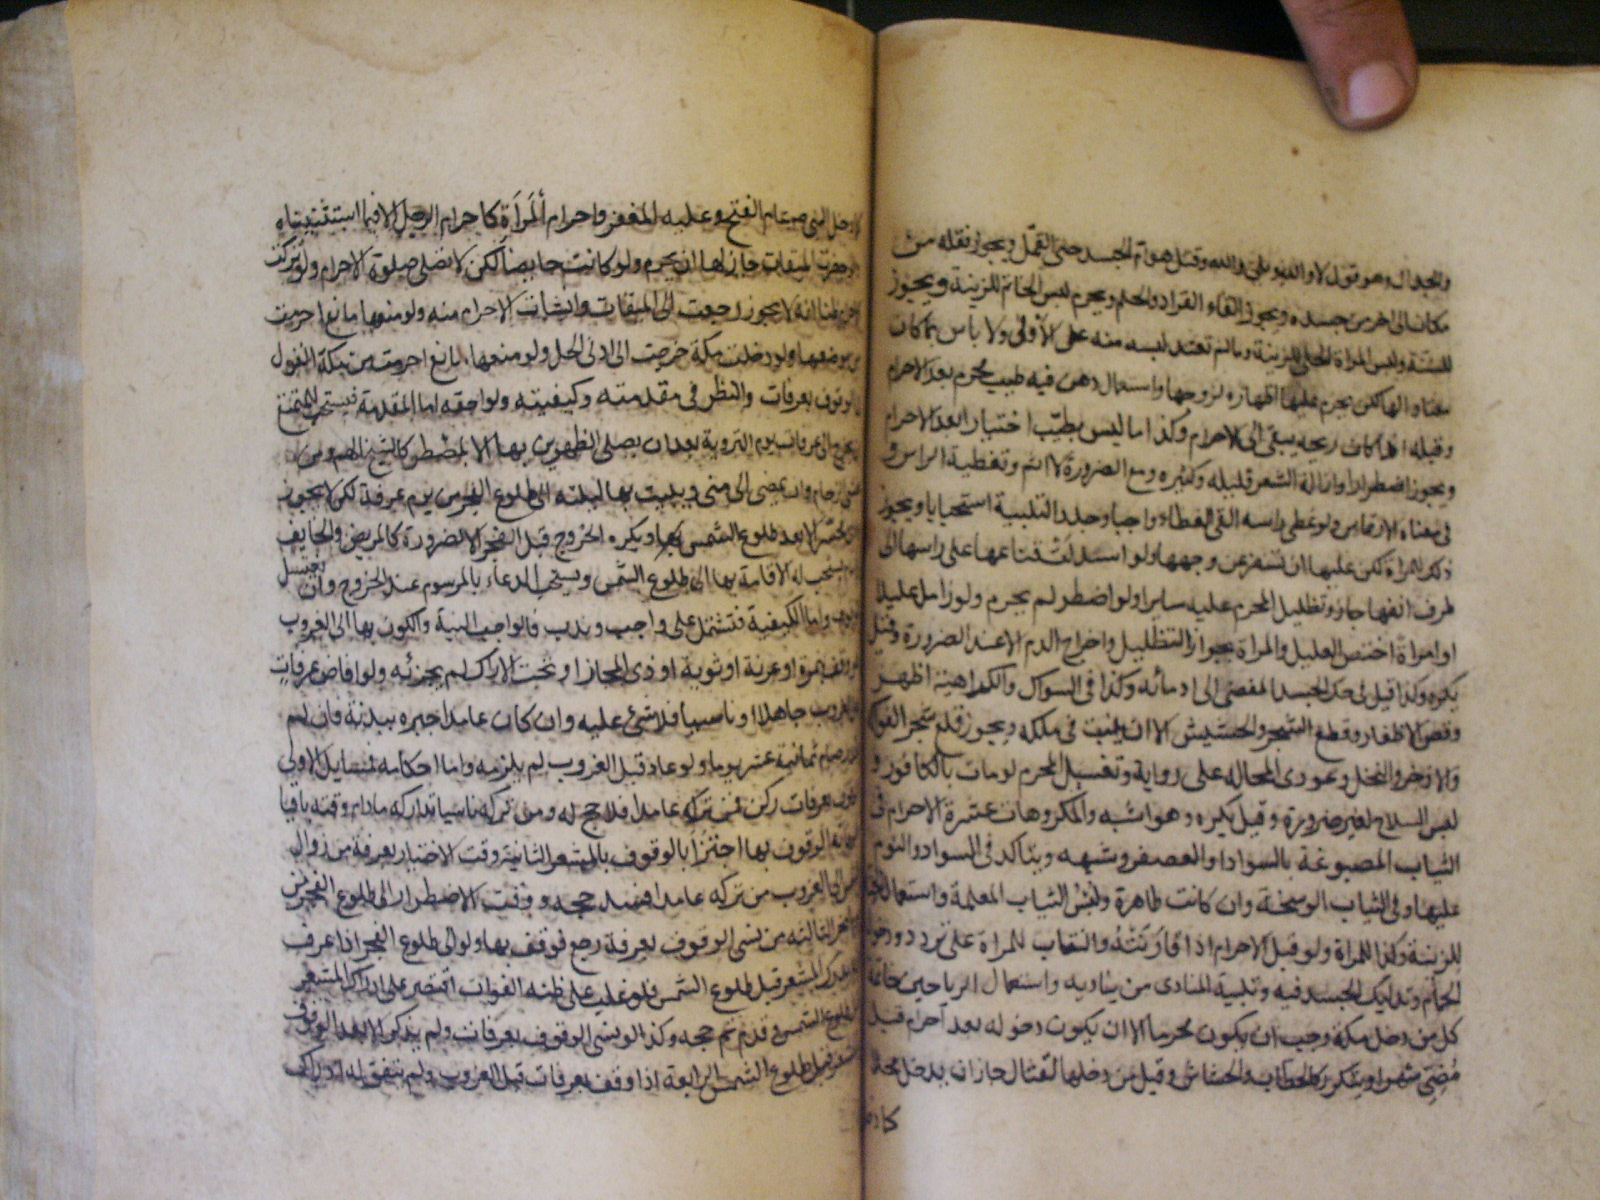 والجدال وهو قول لا والله وبلى والله وقتل هوام الجسد حتى القمل ويجوز نقله من
مكان الى اخر من جسده ويجوز القاء القراد والحلم ويحرم لبس الخاتم للزينة ويجوز
للسنة ولبس المراة الحلى للزينة وما لم تعتد لبسه منه على الأولى ولا باس بما كان
معتادا لها لكن يحرم عليها اظهاره لزوجها واستعمال دهن فيه طيب محرم بعد الاحرام
وقبله اذا كان ريحه يبقى الى الاحرام وكذا ما ليس بطيب اختيارا بعد الاحرام
ويجوز اضطرارا وازالة الشعر قليله وكثيره ومع الضرورة لا اثم وتغطية الراس و
فى معناه الارتماس ولو غطى راسه القى الغطاء واجبا وجدد التلبية استحبابا ويجوز
ذلك للمراة لكن عليها ان تسفر عن وجهها ولو اسدلت قناعها على راسها الى
طرف انفها جاز وتظليل المحرم عليه سايرا ولو اضطر لم يحرم ولو زامل عليلا
او امراة اختص العليل والمراة بجواز التظليل واخراج الدم الا عند الضرورة وقيل
يكره وكذا قيل فى حك الجسد المفضى الى ادمائه وكذا فى السواك والكراهية اظهر
وقص الاظفار وقطع الشجر والحشيش الا ان ينبت فى ملكه ويجوز قلع شجر الفواكه
والاذخر والنخل وعودى المحاله على رواية وتغسيل المحرم لو مات بالكافور و
لبس السلاح لغير ضرورة وقيل يكره وهو اشبه والمكروهات عشرة الاحرام فى
الثياب المصبوغة بالسواد او العصفر وشبهه ويتاكد فى السواد والنوم
عليها وفى الثياب الوسخة وان كانت طاهرة ولبس الثياب المعلمة واستعمال الحنا
للزينة وكذا للمراة ولو قبل الاحرام اذا قارنته والنقاب للمراة على تردد ودخول
الحمام وتدليك الجسد فيه وتلبية المنادى من يناديه واستعمال الرياحين خاتمة
كل من دخل مكة وجب ان يكون محرما الا ان يكون دخوله بعد احرام قبل
مضى شهر او يتكرر كالحطاب والحشاش وقيل من دخلها لقتال جاز ان يدخل محلا
كما دخل
كما دخل النبى عام الفتح وعليه المغفر واحرام المراة كاحرام الرجل الا فيما استثنيناه
ولو حضرت الميقات جاز لها ان تحرم ولو كانت حايضا لكن لا تصلى صلوة الاحرام ولو تركت
الاحرام ظنا انه لا يجوز رجعت الى الميقات وانشات الاحرام منه ولو منعها مانع احرمت
من موضعها ولو دخلت مكة خرجت الى ادنى الحل ولو منعها مانع احرمت من مكة القول
فى الوقوف بعرفات والنظر فى مقدمته وكيفيته ولواحقه اما المقدمة فيستحب للمتمتع
ان يخرج الى عرفات يوم التروية بعد ان يصلى الظهرين بها الا المضطر كالشيخ الهم ومن
يخشى الزحام وان يمضى الى منى ويبيت بها ليلته الى طلوع الفجر من يوم عرفة لكن لا يجوز
وادى محسر الا بعد طلوع الشمس ويكره الخروج قبل الفجر الا لضرورة كالمريض والخايف
والامام يستحب له الاقامة بها الى طلوع الشمس ويستحب الدعاء بالمرسوم عند الخروج وان يغتسل
للوقوف واما الكيفية فتشتمل على واجب وندب فالواجب النية والكون بها الى الغروب
فلو وقف بنمرة او عرنة او ثوية او ذى المجاز او تحت الاراك لم يجزئه ولو افاض من عرفات
قبل الغروب جاهلا او ناسيا فلا شئ عليه وان كان عامدا جبره ببدنة فان لم
يقدر صام ثمانية عشر يوما ولو عاد قبل الغروب لم يلزمه واما احكامه فمسايل الاولى
الوقوف بعرفات ركن فمن تركه عامدا فلا حج له ومن تركه ناسيا تداركه ما دام وقته باقيا
ولو فاته الوقوف بها اجتزأ بالوقوف بالمشعر الثانية وقت الاختيار لعرفة من زوال
الشمس الى الغروب من تركه عامدا فسد حجه ووقت الاضطرار الى طلوع الفجر من
يوم النحر الثالثة من نسى الوقوف بعرفة رجع فوقف بها ولو الى طلوع الفجر اذا عرف
انه يدرك المشعر قبل طلوع الشمس فلو غلب على ظنه الفوات اقتصر على ادراك المشعر
قبل طلوع الشمس وقد تم حجه وكذا لو نسى الوقوف بعرفات ولم يذكر الا بعد الوقوف
بالمشعر قبل طلوع الشمس الرابعة اذا وقف بعرفات قبل الغروب ولم يتفق له ادراك